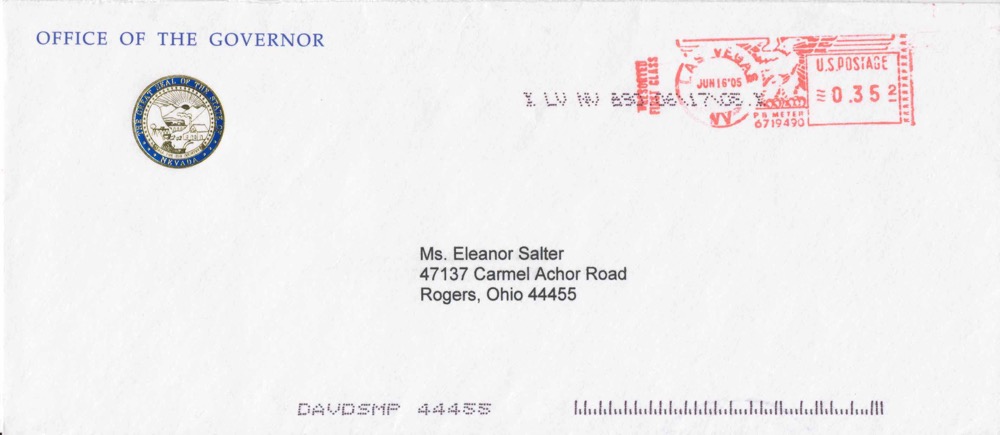 OFFICE OF THE GOVERNOR
THE GREAT SEAL OF THE STATE OF
NEVADA
PRESORTED
FIRST CLASS
LAS VEGAS
JUN 16'05
NV
U.S. POSTAGE
0.352
PB METER
6719490
LV NV 890 06-17-05
Ms. Eleanor Salter
47137 Carmel Achor Road
Rogers, Ohio 44455
DAVDSMP 44455